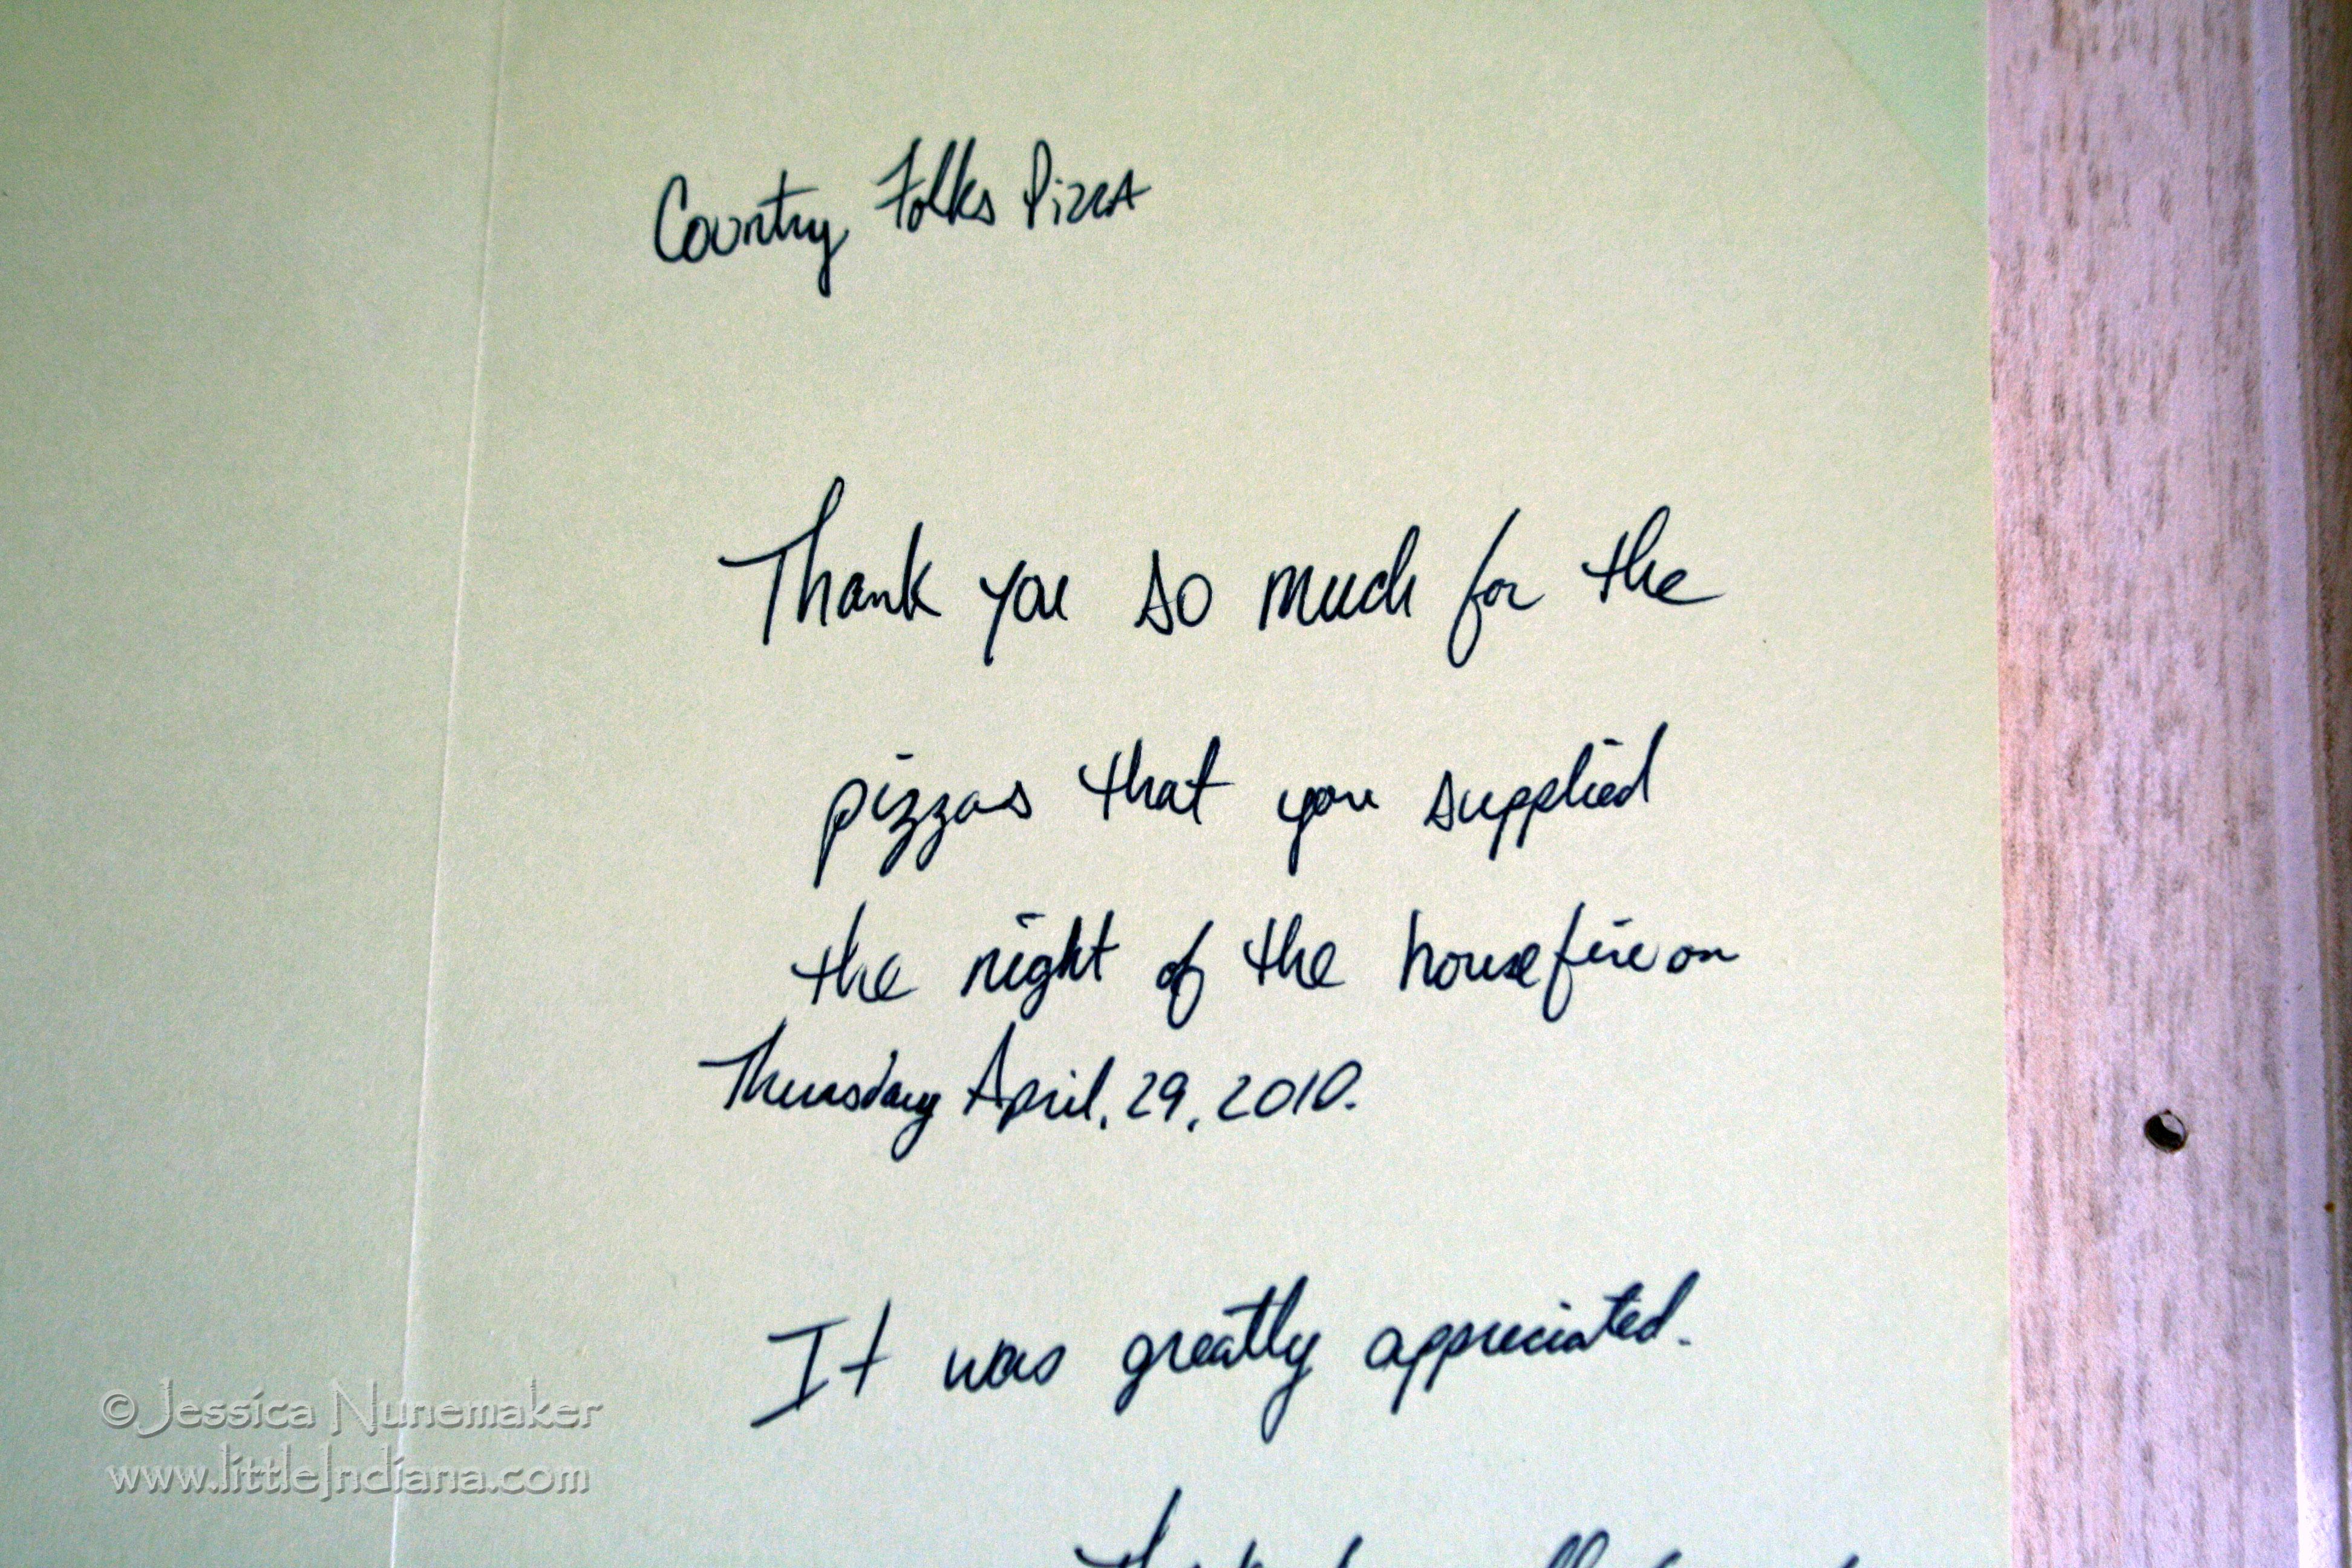 Country Folks Pizza
Thank you so much for the
pizzas that you supplied
the night of the house fire on
Thursday April, 29, 2010.
It was greatly appreciated.
©Jessica Nunemaker
www.littleIndiana.com